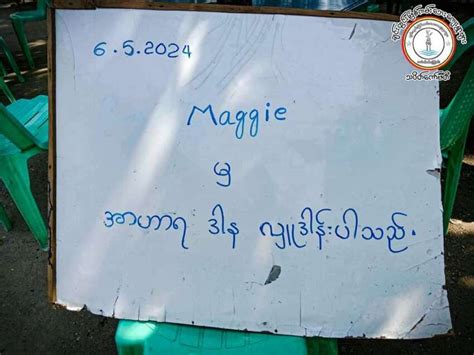 6.5.2024
Maggie
မှ
အာဟာရ ဒါန လှူဒါန်းပါသည်.